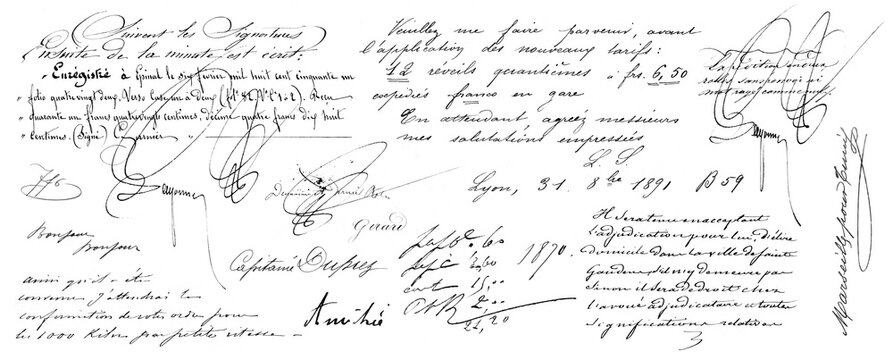 Suivent les Signatures
Ensuite de la minute est écrit:
" Enregistré à Epinal le dix février mil huit cent cinquante un
" folio quatre vingt deux, Verso Case une à deux (f° 82, V° C 1 à 2). Reçu
" quarante un francs quatre vingt centimes, décime quatre francs dix huit
" centimes. (Signé)
Veuillez me faire parvenir, avant
l'application des nouveaux tarifs:
12 réveils quantièmes à frs. 6,50
expédiés franco en gare
En attendant agréez messieurs
mes salutations empressées
L. S.
Lyon, 31. 8bre 1891 B 59
Expédition
Bonjour
Bonjour
Gérard
Capitaine Dupuy
ainsi qu'il a été
convenu j'attendrai la
confirmation de votre ordre pour
les 1000 Kilos par petite vitesse
60
3,60
15,00
2,00
21,20
1870.
Il sera tenu en acceptant
l'adjudication pour lui, d'élire
domicile dans la ville de Saint
Gaudens d'ici y demeurer par
sinon il sera de droit chez
l'avoué adjudicataire et toutes
significations relatives
Marseille pour Tunis